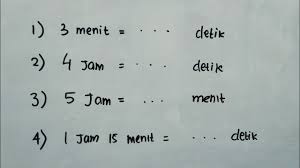 1) 3 menit = . . . detik
2) 4 Jam = . . . detik
3) 5 Jam = . . . menit
4) 1 Jam 15 menit = . . . detik